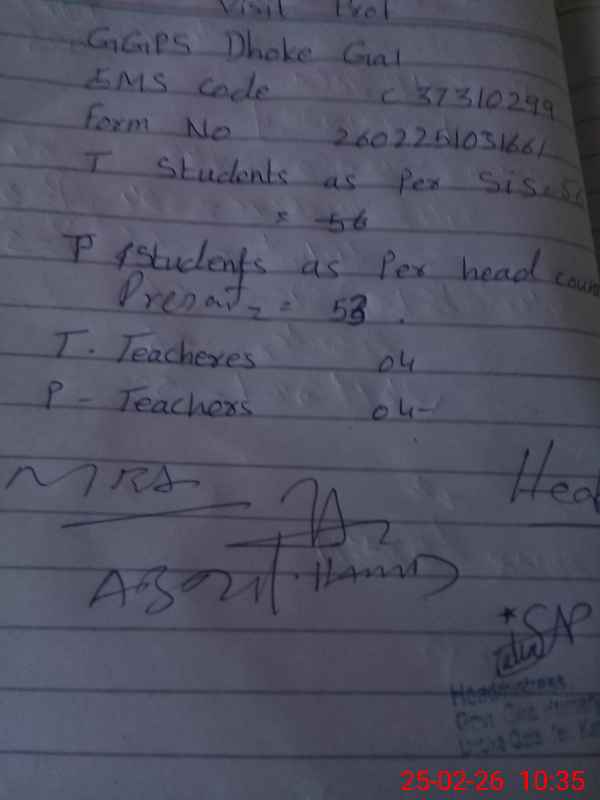 Visit Prof
GGPS Dhoke Gal
EMS code c 37310299
Form No 2602251031661
T Students as Per Sis-S
= 56
P Students as Per head coun
Prenat = 53.
T. Teacheres 04
P - Teachers 04-
MRA
Hea
ABDUL.HAMID
*SAP
Headmistress
25-02-26 10:35